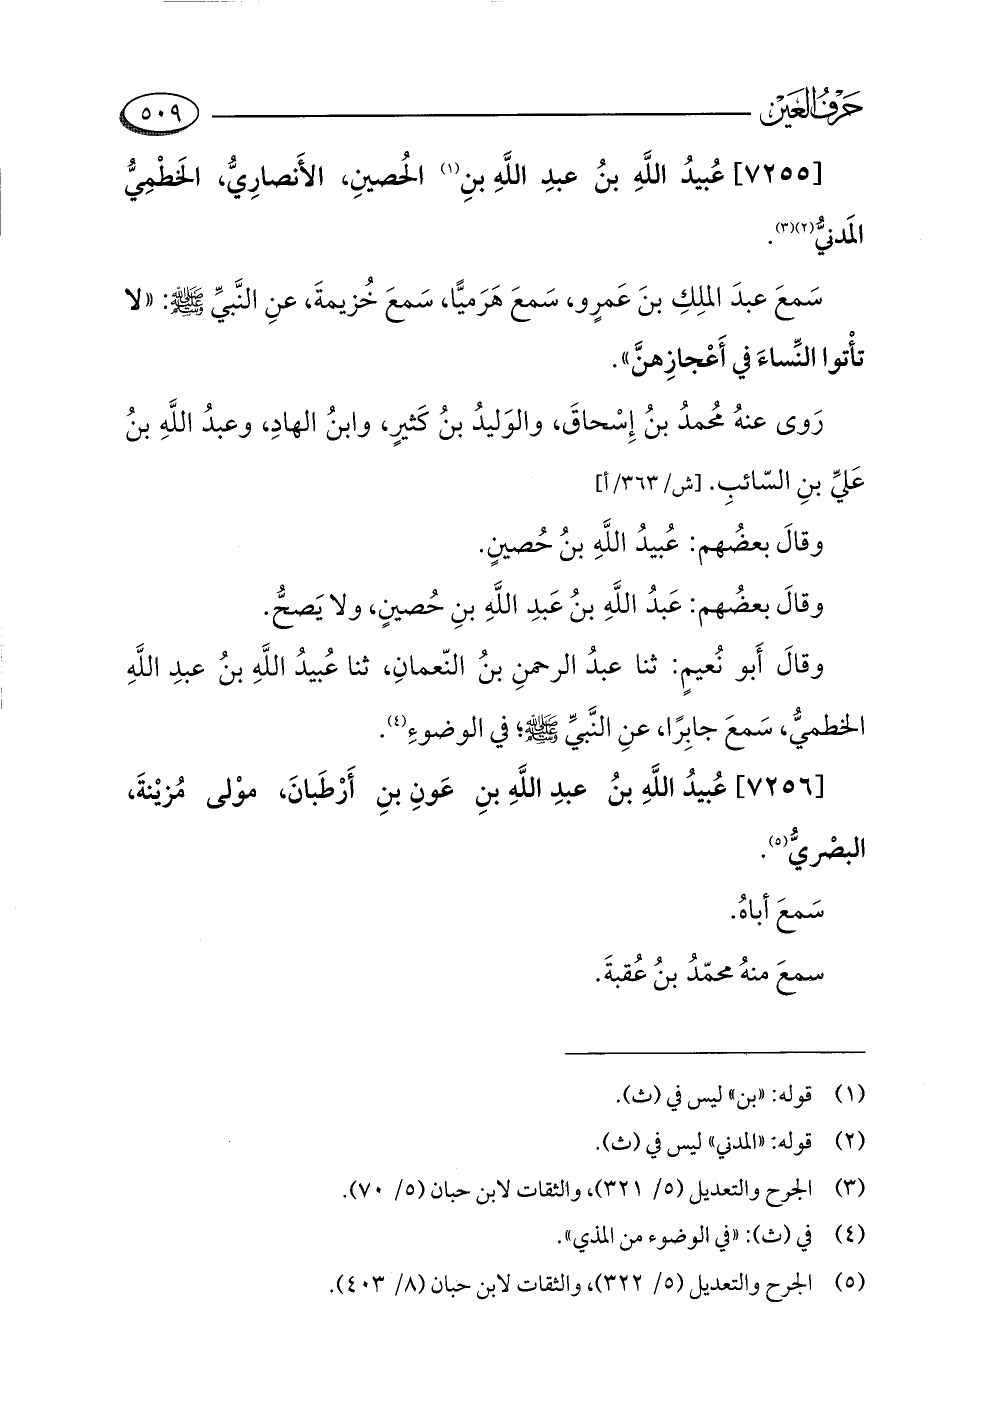 حَرْفُ العَيْن
٥٠٩
[٧٢٥٥] عُبيدُ اللَّهِ بنُ عبدِ اللَّهِ بنِ(١) الحُصينِ، الأَنصارِيُّ، الخَطْمِيُّ
المَدنيُّ(٢)(٣).
سَمعَ عبدَ الملِكِ بنَ عَمرٍو، سَمعَ هَرَميًّا، سَمعَ خُزيمةَ، عنِ النَّبيِّ ﷺ: «لا
تأْتوا النِّساءَ في أَعْجازِهنَّ».
رَوى عنهُ محُمدُ بنُ إِسْحاقَ، والوَليدُ بنُ كَثيرٍ، وابنُ الهادِ، وعبدُ اللَّهِ بنُ
عَليِّ بنِ السّائبِ. [ش/ ٣٦٣/ أ]
وقالَ بعضُهم: عُبيدُ اللَّهِ بنُ حُصينٍ.
وقالَ بعضُهم: عَبدُ اللَّهِ بنُ عَبدِ اللَّهِ بنِ حُصينٍ، ولا يَصحُّ.
وقالَ أَبو نُعيمٍ: ثنا عبدُ الرحمنِ بنُ النّعمانِ، ثنا عُبيدُ اللَّهِ بنُ عبدِ اللَّهِ
الخطميُّ، سَمعَ جابِرًا، عنِ النَّبيِّ ﷺ؛ في الوضوءِ(٤).
[٧٢٥٦] عُبيدُ اللَّهِ بنُ عبدِ اللَّهِ بنِ عَونِ بنِ أَرْطَبانَ، موْلى مُزيْنةَ،
البصْريُّ(٥).
سَمعَ أباهُ.
سمعَ منهُ محمّدُ بنُ عُقبةَ.
(١) قوله: «بن» ليس في (ث).
(٢) قوله: «المدني» ليس في (ث).
(٣) الجرح والتعديل (٥/ ٣٢١)، والثقات لابن حبان (٥/ ٧٠).
(٤) في (ث): «في الوضوء من المذي».
(٥) الجرح والتعديل (٥/ ٣٢٢)، والثقات لابن حبان (٨/ ٤٠٣).